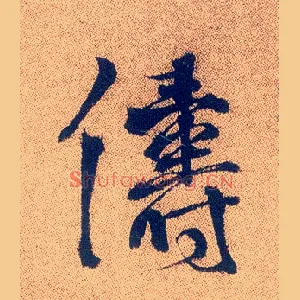 儔
Shufawang.CN